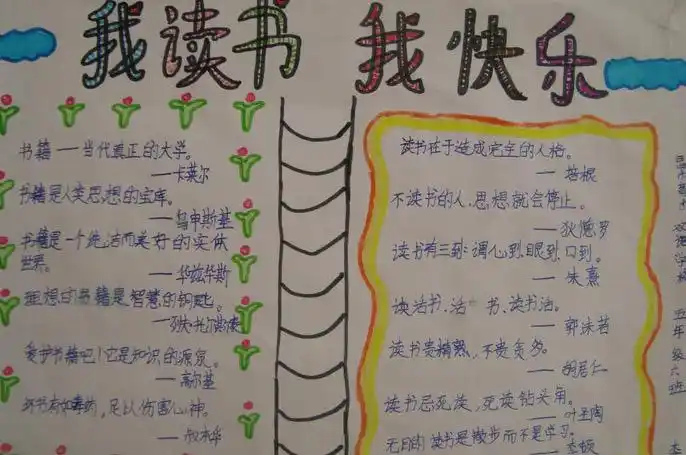 我读书 我快乐
书籍——当代真正的大学。
——卡莱尔
书籍是人类思想的宝库。
——乌申斯基
书籍是一个纯洁而美好的实体
世界。
——华兹华斯
理想的书籍是智慧的钥匙。
爱护书籍吧！它是知识的源泉。
——高尔基
坏书有如毒药，足以伤害心神。
——叔本华
读书在于造成完全的人格。
——培根
不读书的人，思想就会停止。
——狄德罗
读书有三到：谓心到眼到口到。
——朱熹
读活书、活 书、读书活。
——郭沫若
读书贵精熟，不贵贪多。
——胡居仁
读书忌死读，死读钻头角。
——叶圣陶
无目的读书是散步而不是学习。
五
年
级
六
班